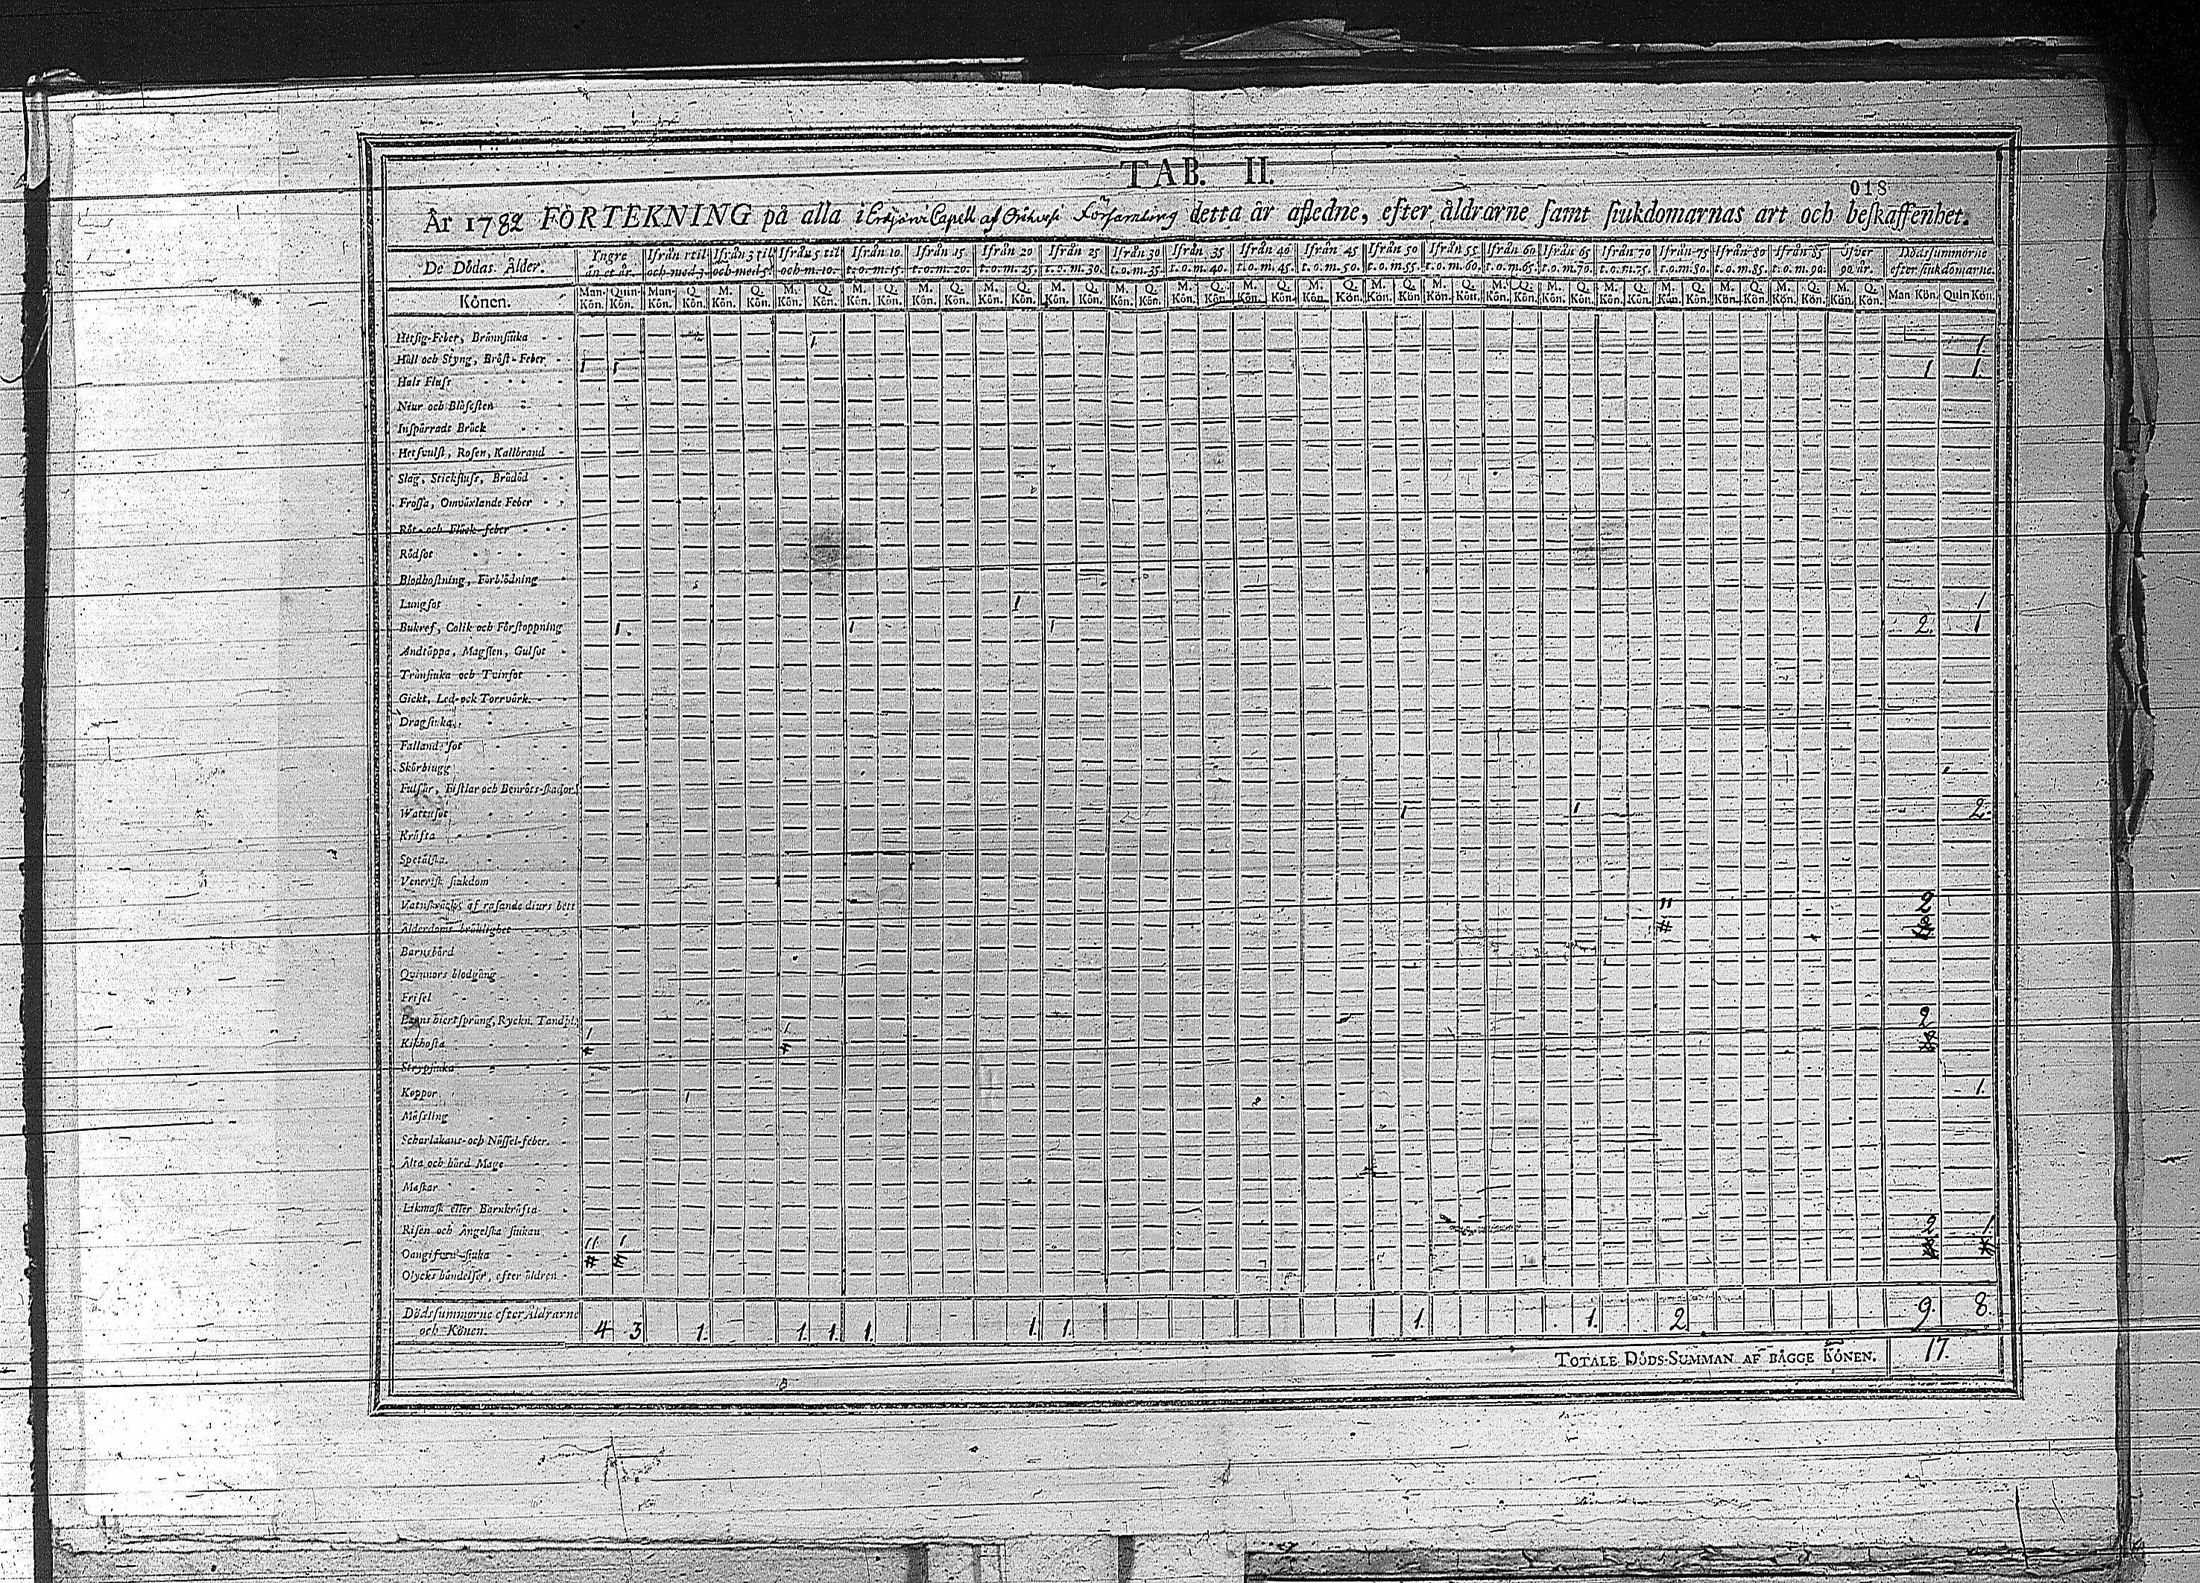 TAB. II.
018
År 1782 FÖRTEKNING på alla i Eräjärvi Capell af Församling detta år afledne, efter åldrarne samt siukdomarnas art och beskaffenhet.
De Dödas Ålder. Yngre än et år. Ifrån 1 til och med 3. Ifrån 3 til och med 5. Ifrån 5 til och m. 10. Ifrån 10 t. o. m. 15. Ifrån 15 t. o. m. 20. Ifrån 20 t. o. m. 25. Ifrån 25 t. o. m. 30. Ifrån 30 t. o. m. 35. Ifrån 35 t. o. m. 40. Ifrån 40 t. o. m. 45. Ifrån 45 t. o. m. 50. Ifrån 50 t. o. m. 55. Ifrån 55 t. o. m. 60. Ifrån 60 t. o. m. 65. Ifrån 65 t. o. m. 70. Ifrån 70 t. o. m. 75. Ifrån 75 t. o. m. 80. Ifrån 80 t. o. m. 85. Ifrån 85 t. o. m. 90. Öfver 90 år. Dödssummorne efter siukdomarne.
Könen. Man-Kön. Quin-Kön. Man-Kön. Q. Kön. M. Kön. Q. Kön. M. Kön. Q. Kön. M. Kön. Q. Kön. M. Kön. Q. Kön. M. Kön. Q. Kön. M. Kön. Q. Kön. M. Kön. Q. Kön. M. Kön. Q. Kön. M. Kön. Q. Kön. M. Kön. Q. Kön. M. Kön. Q. Kön. M. Kön. Q. Kön. M. Kön. Q. Kön. M. Kön. Q. Kön. M. Kön. Q. Kön. M. Kön. Q. Kön. M. Kön. Q. Kön. M. Kön. Q. Kön. M. Kön. Q. Kön. Man Kön. Quin Kön.
Hetsig-Feber, Brännsiuka 1 1
Håll och Styng, Bröst-Feber 1 1 1 1
Hals Fluss
Niur och Blåsesten
Inspärradt Bråck
Hetsvulst, Rosen, Kallbrand
Slag, Stickfluss, Brådöd
Frossa, Omväxlande Feber
Röt- och Fläck-feber
Rödsot
Blodhostning, Förblödning
Lungsot 1 1
Bukref, Colik och Förstoppning 1 1 1 2 1
Andtäppa, Magsten, Gulsot
Trånsiuka och Tvinsot
Gickt, Led- och Torrvärk
Dragsiuka
Falland sot
Skörbiugg
Fulsår, Fistlar och Benröts-skador
Wattusot 1 1 2
Kräfta
Spetälska
Venerisk siukdom
Vatuskräck af rasande diurs bett 11 2
Ålderdoms bräcklighet
Barnsbörd
Quinnors blodgång
Frisel
Barns hiertsprång, Ryckn. Tandpl. 2
Kikhosta 1 1
Strypsiuka
Koppor 1 1
Mässling
Scharlakans- och Nässel-feber.
Älta och hård Mage
Maskar
Likmask eller Barnkräfta
Risen och Ängelska siukan 2 1
Oangifven siuka 11 1
Olycks händelser, efter åldren
Dödssummorne efter Åldrarne och Könen. 4 3 1. 1. 1. 1. 1. 1. 1. 1. 2 9. 8.
TOTALE DÖDS-SUMMAN AF BÄGGE KÖNEN. 17.